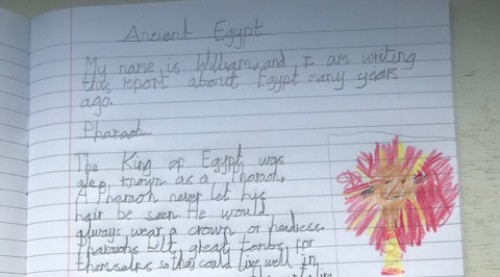 Ancient Egypt
My name is William, and I am writing
this report about Egypt many years
ago.
Pharaoh
The King of Egypt was
also known as a Pharaoh.
A Pharaoh never let his
hair be seen. He would
always wear a crown or headress.
Pharaohs belt great tombs for
themselves so they could live well in